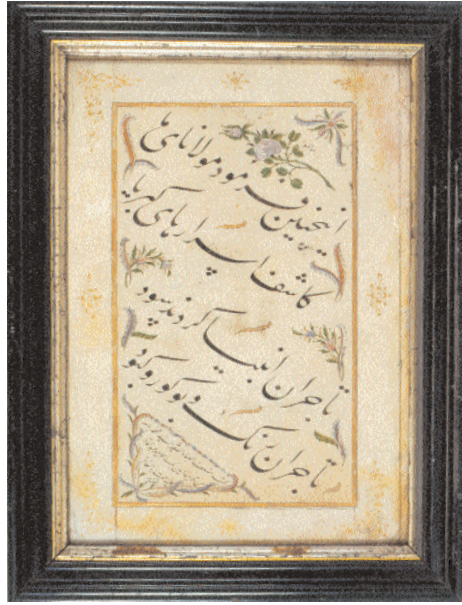 اینچنین فرمود مولانای ما
کاشف اسرارهای کبریا
تاجران انبیا کردند سود
تاجران رنگ و بو کور و کبود